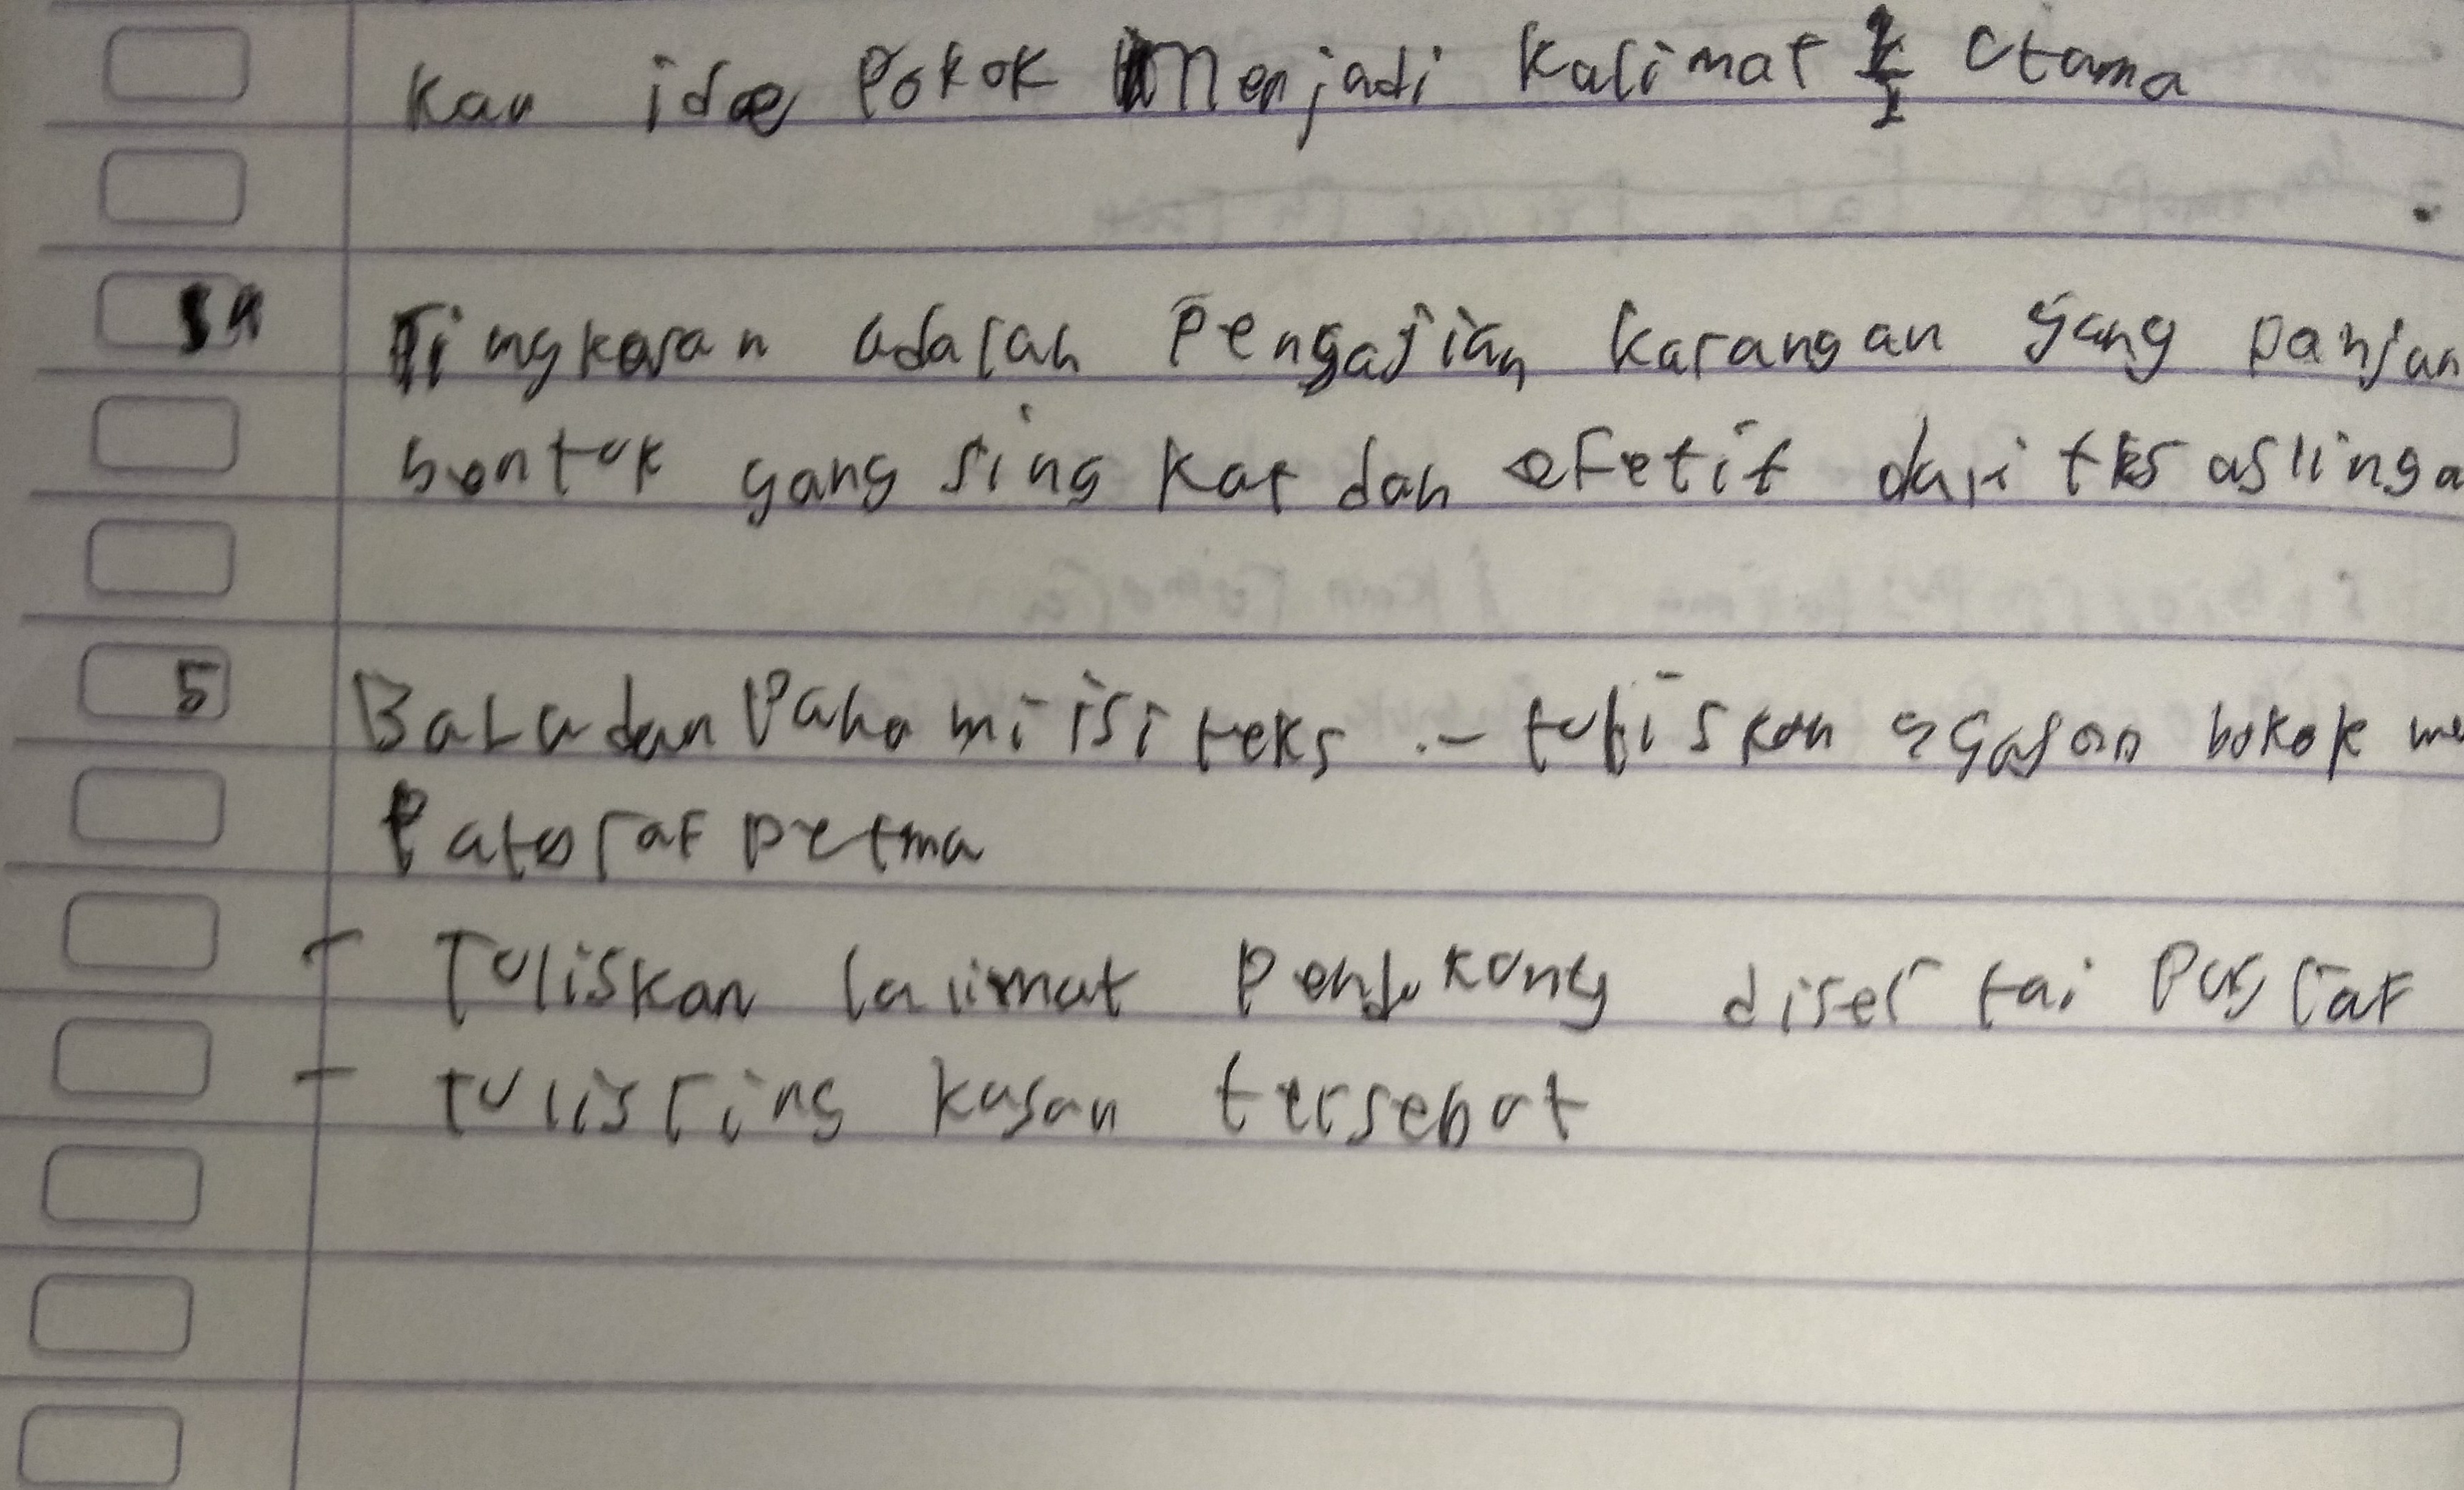 kan ide Pokok Menjadi Kalimat utama
4 Ringkasan adalah Pengajian karangan yang panjan
bentuk yang sing kat dan efetif dari teks aslinya
5 Baca dan Paha mi isi teks .- tuliskan gagasan pokok me
Paragraf petma
- Tuliskan lalimat Pendukung diser tai
- tulis ring kasan tersebut